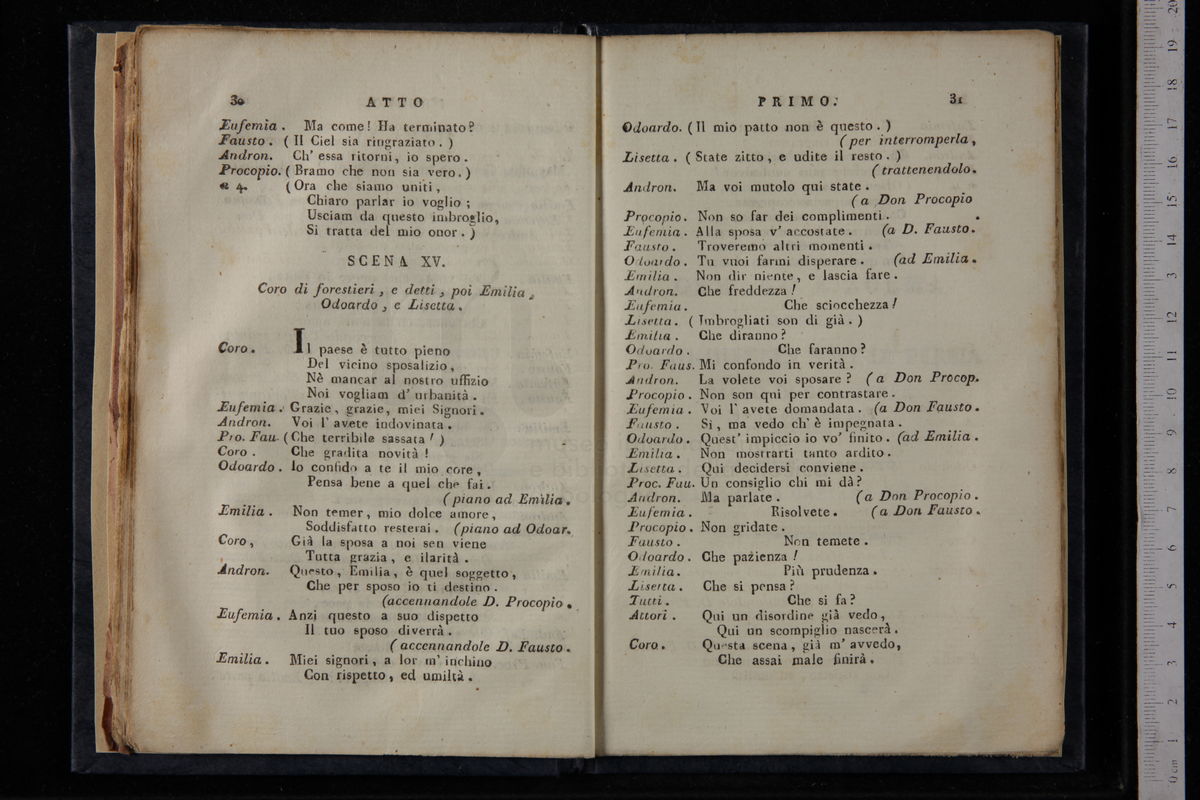 30 ATTO
Eufemia . Ma come! Ha terminato?
Fausto . ( Il Ciel sia ringraziato . )
Andron. Ch' essa ritorni, io spero .
Procopio. ( Bramo che non sia vero. )
a 4. (Ora che siamo uniti,
Chiaro parlar io voglio ;
Usciam da questo imbroglio,
Si tratta del mio onor . )
SCENA XV.
Coro di forestieri, e detti, poi Emilia,
Odoardo, e Lisetta.
Coro. Il paese è tutto pieno
Del vicino sposalizio,
Nè mancar al nostro uffizio
Noi vogliam d' urbanità .
Eufemia . Grazie, grazie, miei Signori .
Andron. Voi l' avete indovinata .
Pro. Fau. ( Che terribile sassata ! )
Coro . Che gradita novità !
Odoardo . Io confido a te il mio core,
Pensa bene a quel che fai .
(piano ad Emilia.
Emilia . Non temer, mio dolce amore,
Soddisfatto resterai . (piano ad Odoar.
Coro, Già la sposa a noi sen viene
Tutta grazia, e ilarità .
Andron. Questo, Emilia, è quel soggetto,
Che per sposo io ti destino .
(accennandole D. Procopio.
Eufemia . Anzi questo a suo dispetto
Il tuo sposo diverrà .
( accennandole D. Fausto .
Emilia . Miei signori, a lor m' inchino
Con rispetto, ed umiltà .
PRIMO. 31
Odoardo. ( Il mio patto non è questo . )
( per interromperla,
Lisetta . ( State zitto, e udite il resto . )
( trattenendolo.
Andron. Ma voi mutolo qui state .
( a Don Procopio
Procopio . Non so far dei complimenti .
Eufemia . Alla sposa v' accostate . (a D. Fausto.
Fausto . Troveremo altri momenti .
Odoardo . Tu vuoi farmi disperare . (ad Emilia .
Emilia . Non dir niente, e lascia fare .
Andron. Che freddezza !
Eufemia . Che sciocchezza !
Lisetta . ( Imbrogliati son di già . )
Emilia . Che diranno ?
Odoardo . Che faranno ?
Pro. Faus. Mi confondo in verità .
Andron. La volete voi sposare ? ( a Don Procop.
Procopio . Non son qui per contrastare .
Eufemia . Voi l' avete domandata . (a Don Fausto .
Fausto . Si, ma vedo ch' è impegnata .
Odoardo . Quest' impiccio io vo' finito . (ad Emilia .
Emilia . Non mostrarti tanto ardito .
Lisetta . Qui decidersi conviene .
Proc. Fau. Un consiglio chi mi dà ?
Andron. Ma parlate . ( a Don Procopio .
Eufemia . Risolvete . ( a Don Fausto .
Procopio . Non gridate .
Fausto . Non temete .
Odoardo . Che pazienza !
Emilia . Più prudenza .
Lisetta . Che si pensa ?
Tutti . Che si fa ?
Attori . Qui un disordine già vedo,
Qui un scompiglio nascerà .
Coro . Questa scena, già m' avvedo,
Che assai male finirà .